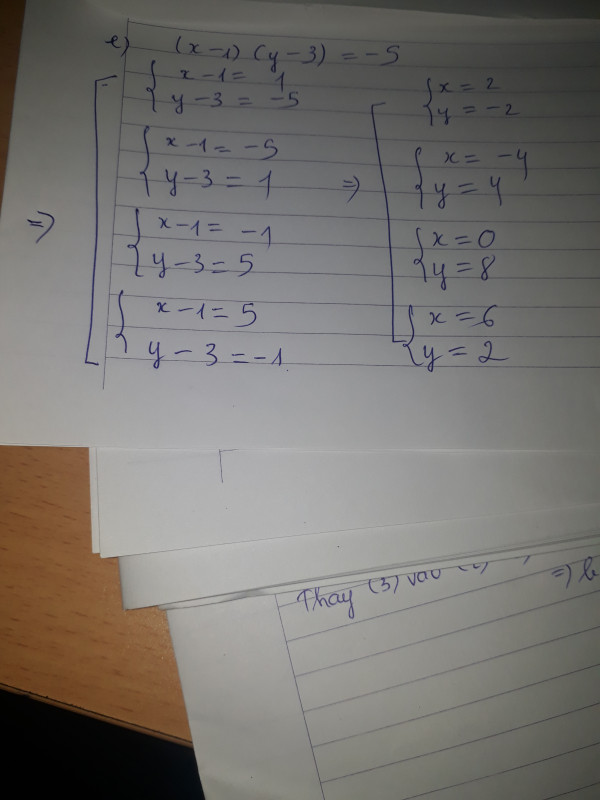 e) (x-1) (y-3) = -5
x-1 = 1
y-3 = -5
x-1 = -5
y-3 = 1
x-1 = -1
y-3 = 5
x-1 = 5
y-3 = -1
=>
=>
x = 2
y = -2
x = -4
y = 4
x = 0
y = 8
x = 6
y = 2
Thay (3) vào
=>